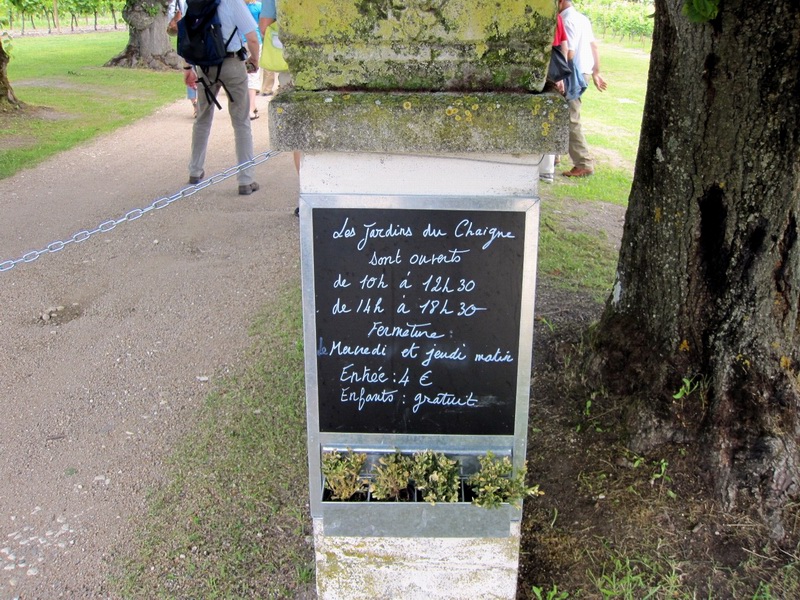 Les Jardins du Chaigne
sont ouverts
de 10h à 12h30
de 14h à 18h30
Fermeture :
le Mercredi et jeudi matin
Entrée : 4 €
Enfants : gratuit